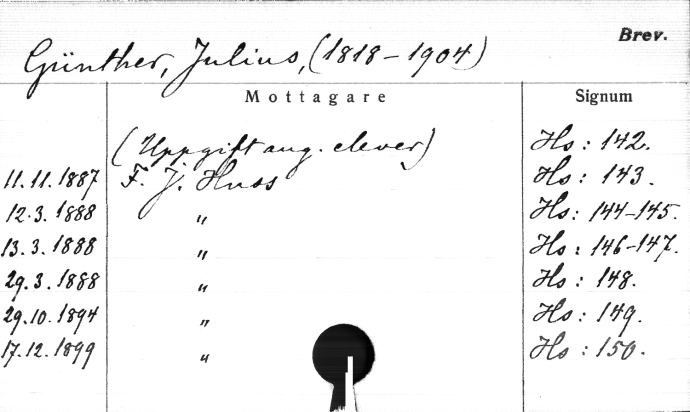 Brev.
Günther, Julius, (1818-1904)
Mottagare Signum
(Uppgift ang. elever) Hs: 142.
11.11.1887 F. J. Huss Hs: 143.
12.3.1888 " Hs: 144-145.
13.3.1888 " Hs: 146-147.
29.3.1888 " Hs: 148.
29.10.1894 " Hs: 149.
17.12.1899 " Hs: 150.